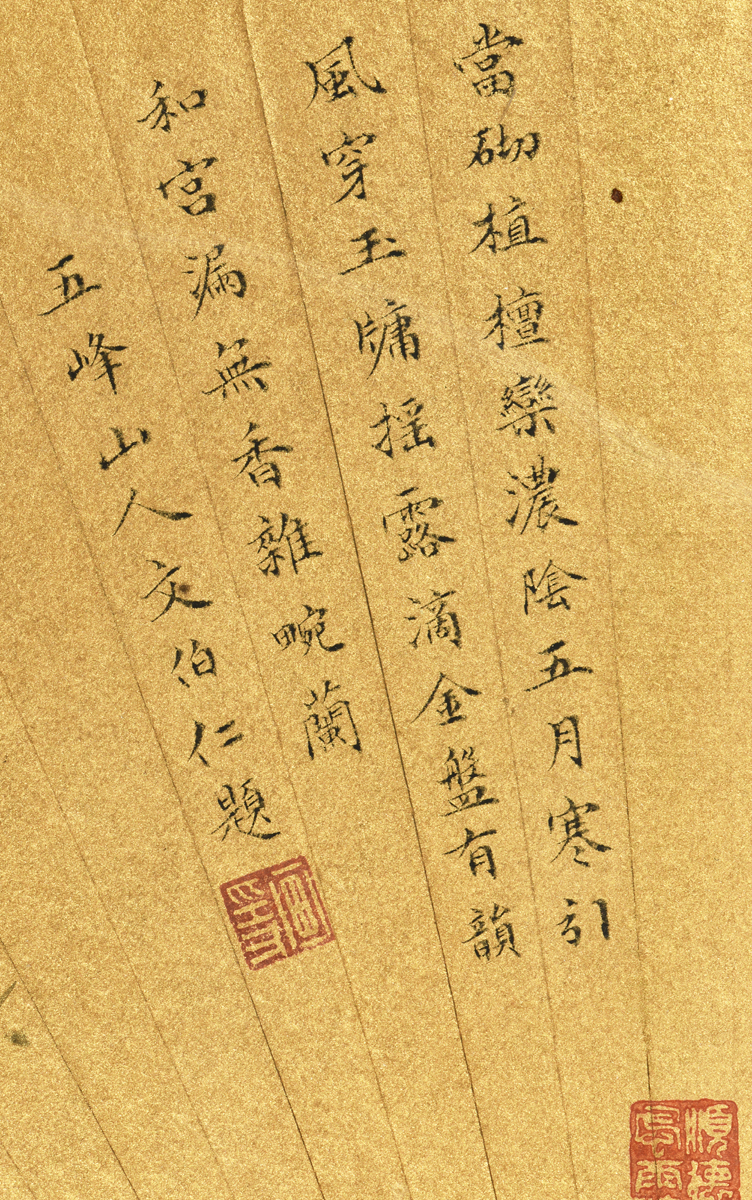 當砌植檀欒濃陰五月寒引
風穿玉牗搖露滴金盤有韻
和宮漏無香雜畹蘭
五峰山人文伯仁題